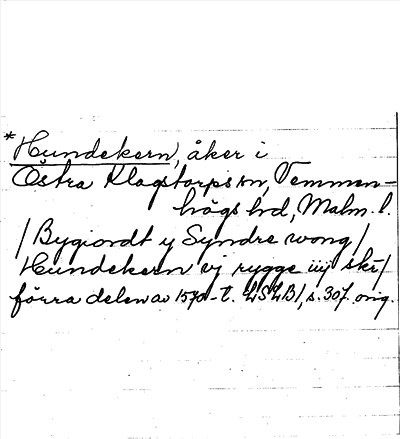 *Hundekern, åker i
Östra Klagstorps sn, Vemmen-
högs hd, Malm. l.
/Bygiordt y Syndre wong/
Hundekern vj rygge iiij skr/
förra delen av 1570-t. LSLB1, s. 307. orig.